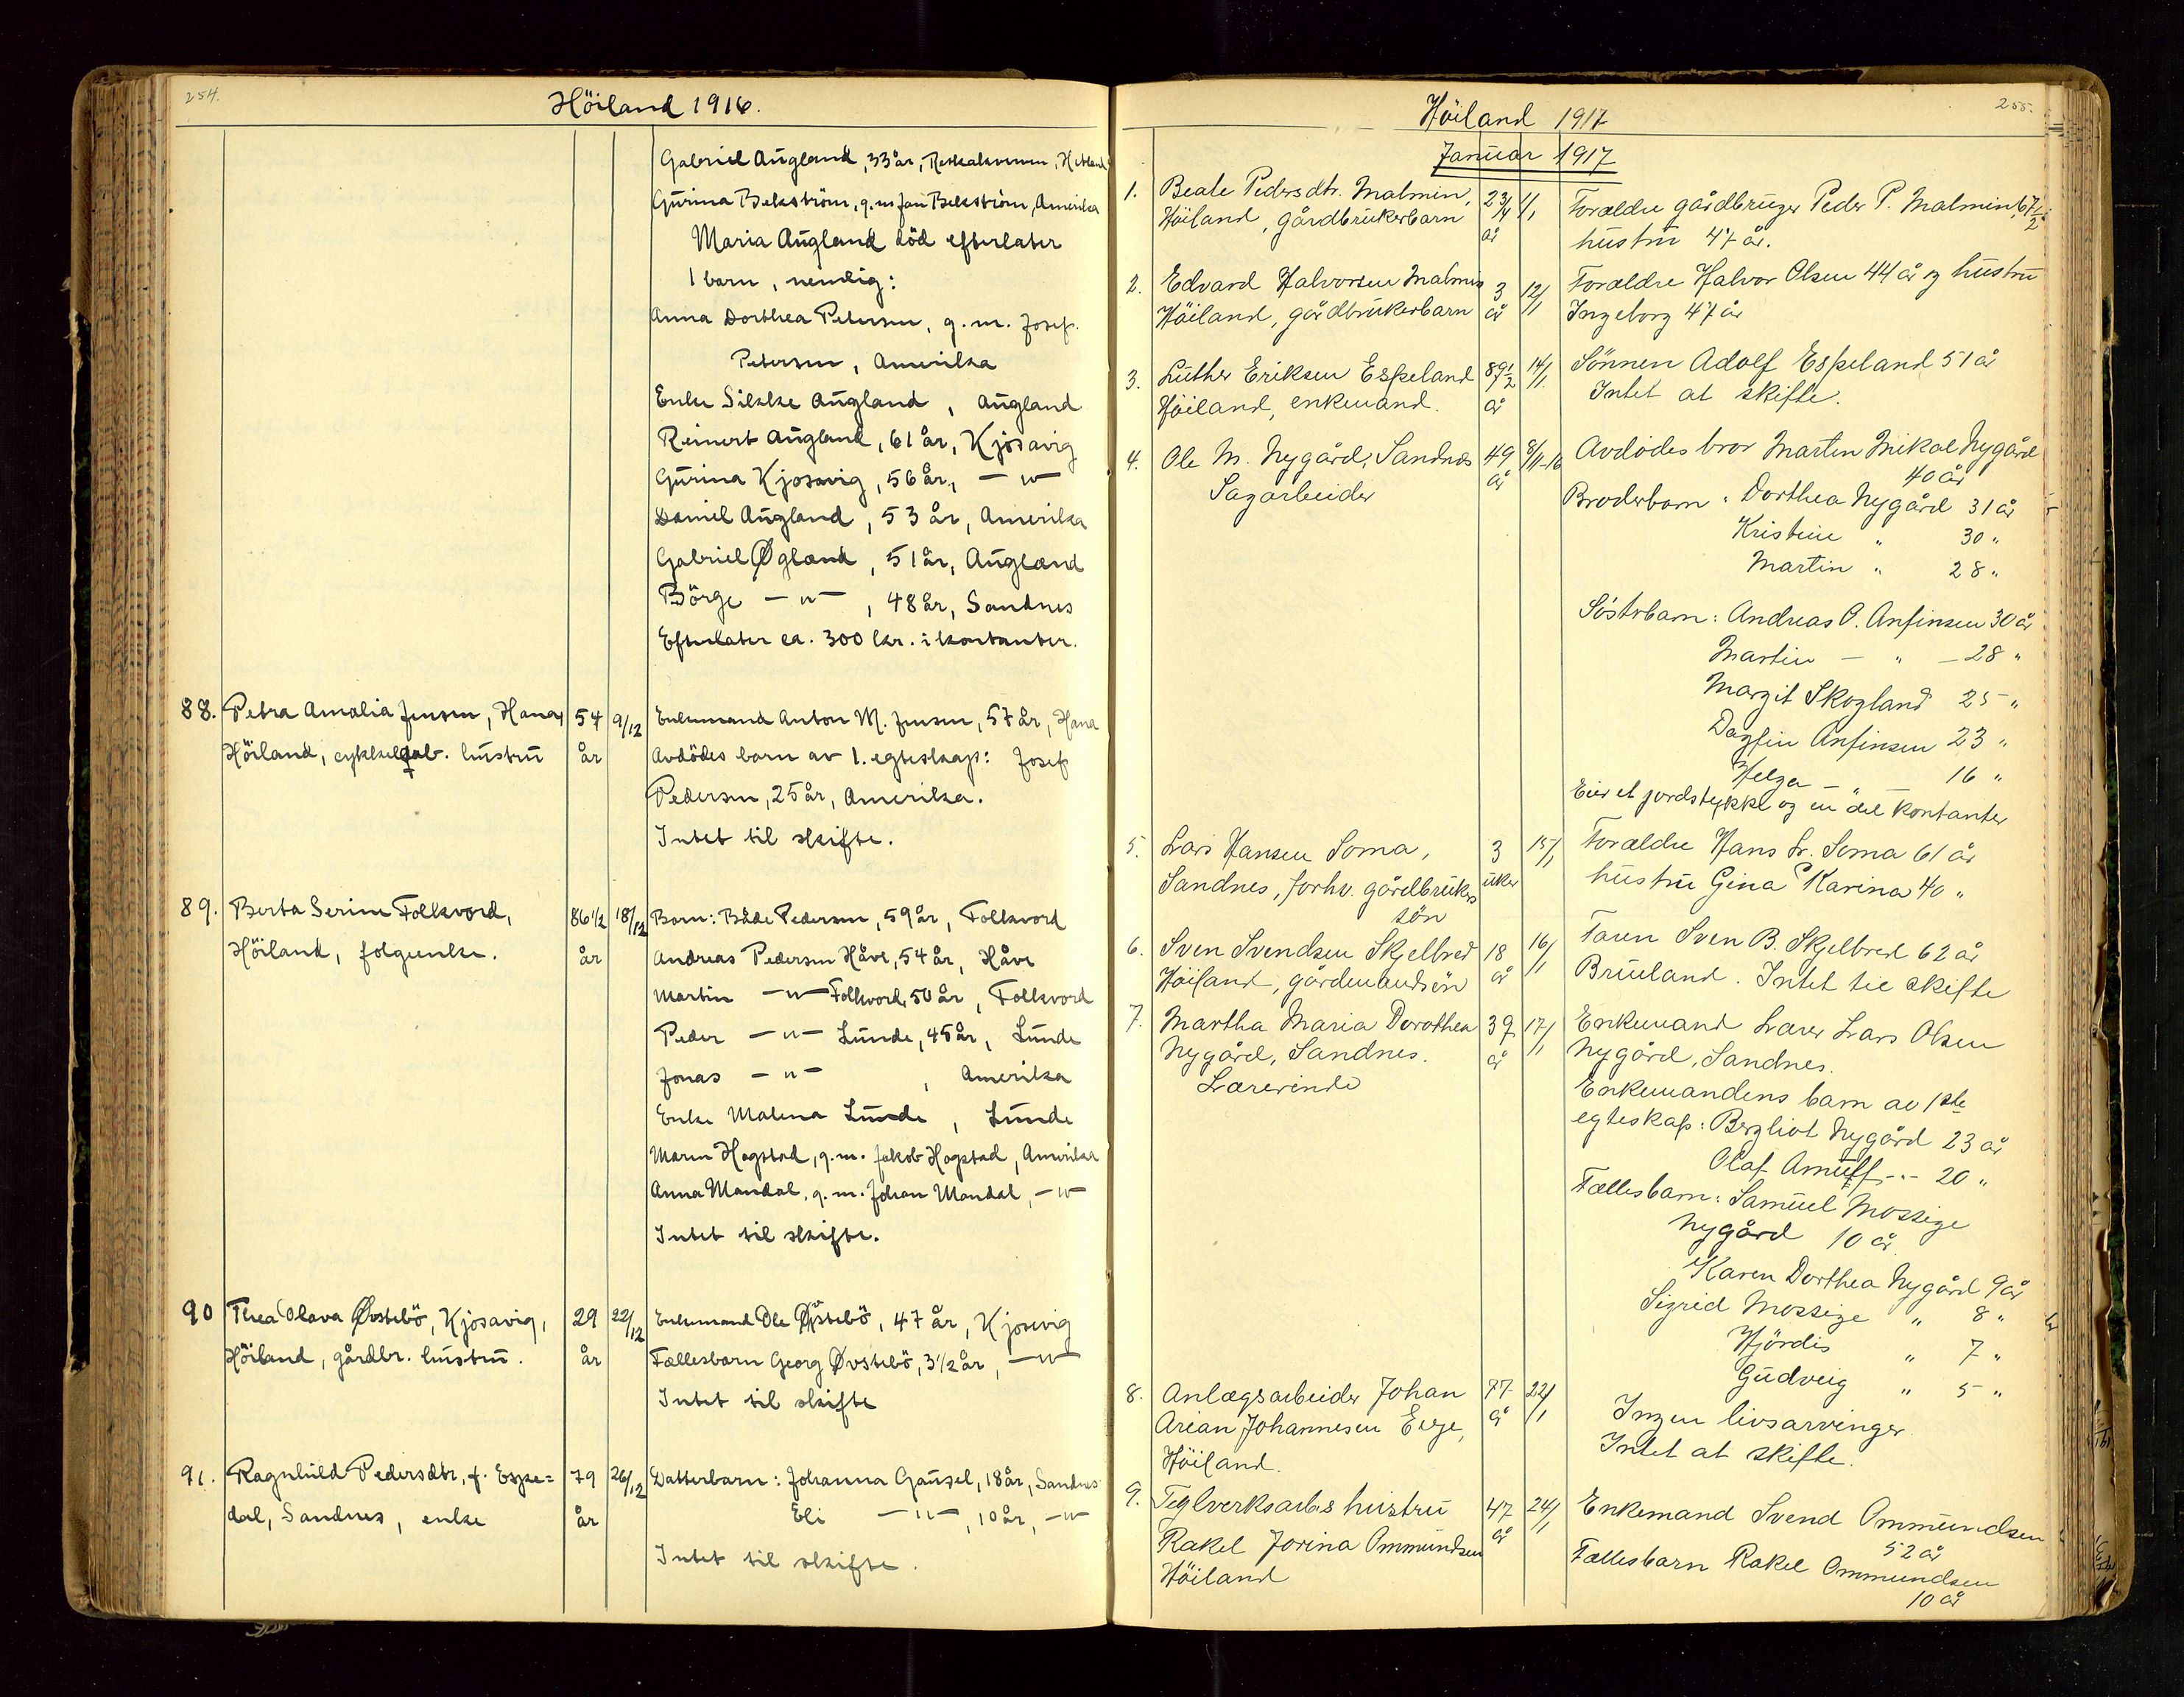 254.
Höiland 1916.
Gabriel Augland, 33 år,
Gurina Bekström, g. m. Jan Bekström, Amerika
Maria Augland död efterlater
1 barn, nemlig:
Anna Dorthea Petersen, g. m. Josef
Petersen, Amerika
Enke Silkke Augland, Augland
Reinert Augland, 61 år, Kjosavig
Gurina Kjosavig, 56 år, — " —
Daniel Augland, 53 år, Amerika
Gabriel Øgland, 51 år, Augland
Börge — " —, 48 år, Sandnes
Efterlater ca. 300 kr. i kontanter.
88. Petra Amalia Jensen, Hana, 54 9/12 Enkemand Anton M. Jensen, 57 år, Hana
Höiland, cykkelfab. hustru år Avdödes barn av 1. egteskap: Josef
Pedersen, 25 år, Amerika.
Intet til skifte.
89. Berta Serine Folkvord, 86 1/2 18/12 Barn: Både Pedersen, 59 år, Folkvord
Höiland, folgeenke. år Andreas Pedersen Håve, 54 år, Håve
Martin — " — Folkvord, 50 år, Folkvord
Peder — " — Lunde, 45 år, Lunde
Jonas — " — , Amerika
Enke Malena Lunde, Lunde
Maren Hogstad, g. m. Jakob Hogstad, Amerika
Anna Mandal, g. m. Johan Mandal, — " —
Intet til skifte.
90 Thea Olava Øvstebö, Kjosavig, 29 22/12 Enkemand Ole Øvstebö, 47 år, Kjosvig
Höiland, gårdbr. hustru. år Fællesbarn Georg Øvstebö, 3 1/2 år, — " —
Intet til skifte
91. Ragnhild Pedersdtr, f. Espe= 79 26/12 Datterbarn: Johanna Gausel, 18 år, Sandnes
dal, Sandnes, enke år Eli — " —, 10 år, — " —
Intet til skifte.
255.
Höiland 1917
Januar 1917
1. Beate Pedersdtr. Malmin, 2 3/4 1/1 Forældre gårdbruger Peder P. Malmin, 67 1/2
Höiland, gårdbrukerbarn år hustru 47 år.
2. Edvard Halvorsen Malmin 3 12/1 Forældre Halvor Olsen 44 år og hustru
Höiland, gårdbrukerbarn år Ingeborg 47 år
3. Luther Eriksen Espeland 89 1/2 14/1 Sönnen Adolf Espeland 51 år
Höiland, enkemand. år Intet at skifte.
4. Ole M. Nygård, Sandnes 49 8/11-16 Avdödes bror Martin Mikal Nygård
Sagarbeider år 40 år
Broderbarn: Dorthea Nygård 31 år
Kristine " 30 "
Martin " 28 "
Söstrbarn: Andreas O. Anfinsen 30 år
Martin — " — 28 "
Margit Skogland 25 "
Dagfin Anfinsen 23 "
Helga — " — 16 "
Eier et jordstykke og en del kontanter
5. Lars Hansen Soma, 3 15/1 Forældre Hans Lr. Soma 61 år
Sandnes, forhv. gårdbruker uker hustru Gina Karina 40 "
sön
6. Sven Svendsen Skjelbred 18 16/1 Faren Sven B. Skjelbred 62 år
Höiland, gårdmandsön år Bruland. Intet til skifte
7. Martha Maria Dorothea 39 17/1 Enkemand Lærer Lars Olsen
Nygård, Sandnes. år Nygård, Sandnes.
Lærerinde Enkemandens barn av 1ste
egteskap: Bergliot Nygård 23 år
Olaf -"- 20 "
Fællesbarn: Samuel Mossige
Nygård 10 år
Karen Dorthea Nygård 9 år
Sigrid Mossige " 8 "
Hjördis " 7 "
Gudveig " 5 "
8. Anlægsarbeider Johan 77 22/1 Ingen livsarvinger
Arian Johannesen Eieje, år Intet at skifte.
Höiland.
9. Teglverksarbs hustru 47 24/1 Enkemand Svend Ommundsen
Rakel Jorina Ommundsen år 52 år
Höiland Fællesbarn Rakel Ommundsen
10 år